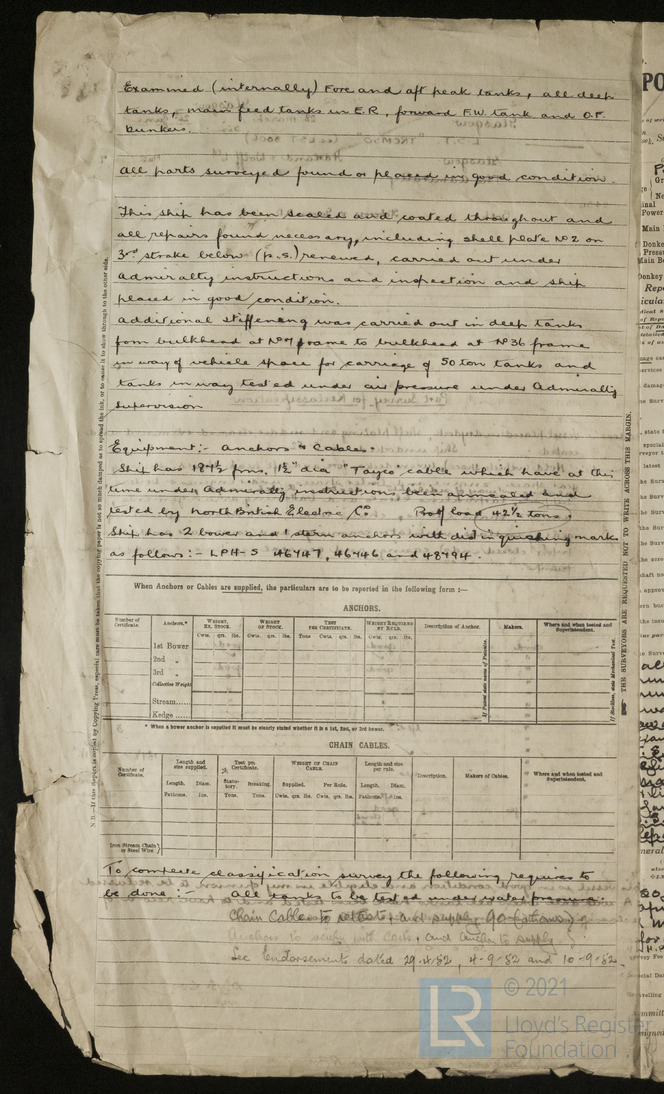 Examined (internally) Fore and aft peak tanks, all deep
tanks, main feed tanks in E.R, forward F.W. tank and O.F.
bunkers.
All parts surveyed found or placed in good condition.
This ship has been scaled and coated throughout and
all repairs found necessary, including shell plate No 2 on
3rd strake below (p.s.) renewed, carried out under
Admiralty instructions and inspection and ship
placed in good condition.
Additional stiffening was carried out in deep tanks
from bulkhead at No 7 frame to bulkhead at No 36 frame
in way of vehicle space for carriage of 50 ton tanks and
tanks in way tested under air pressure under Admiralty
Supervision
Equipment:- Anchors & Cables.
Ship has 187½ fms, 1½" dia "Tayco" cable which have at this
time under Admiralty instructions been annealed and
tested by North British Electric Co. Proof load 42½ tons.
Ship has 2 bower and 1 stern anchors with distinguishing marks
as follows:- LPH-S 46747, 46746 and 48794.
When Anchors or Cables are supplied, the particulars are to be reported in the following form :—
ANCHORS.
Number of Certificate. Anchors.* Weight, Ex. Stock. Weight of Stock. Test per Certificate. Weight Required by Rule. Description of Anchor. Makers. Where and when tested and Superintendent.
Cwts. qrs. lbs. Cwts. qrs. lbs. Tons Cwts. qrs. lbs. Cwts. qrs. lbs.
1st Bower
2nd „
3rd „
Collective Weight
Stream
Kedge
* When a bower anchor is supplied it must be clearly stated whether it is a 1st, 2nd, or 3rd bower.
CHAIN CABLES.
Number of Certificate. Length and size supplied. Test per Certificate. Weight of Chain Cable. Length and size per rule. Description. Makers of Cables. Where and when tested and Superintendent.
Length. Diam. Statutory. Breaking. Supplied. Per Rule. Length. Diam.
Fathoms. Ins. Tons. Tons. Cwts. qrs. lbs. Cwts. qrs. lbs. Fathoms. Ins.
Iron Stream Chain or Steel Wire
To complete classification survey the following requires to
be done:- All tanks to be tested under water pressure.
Chain Cables to retest, and supply 90 fathoms
and anchor to supply
See Endorsements dated 29.4.52, 4-9-52 and 10-9-52.
THE SURVEYORS ARE REQUESTED NOT TO WRITE ACROSS THIS MARGIN.
© 2021
Lloyd's Register
Foundation
LR